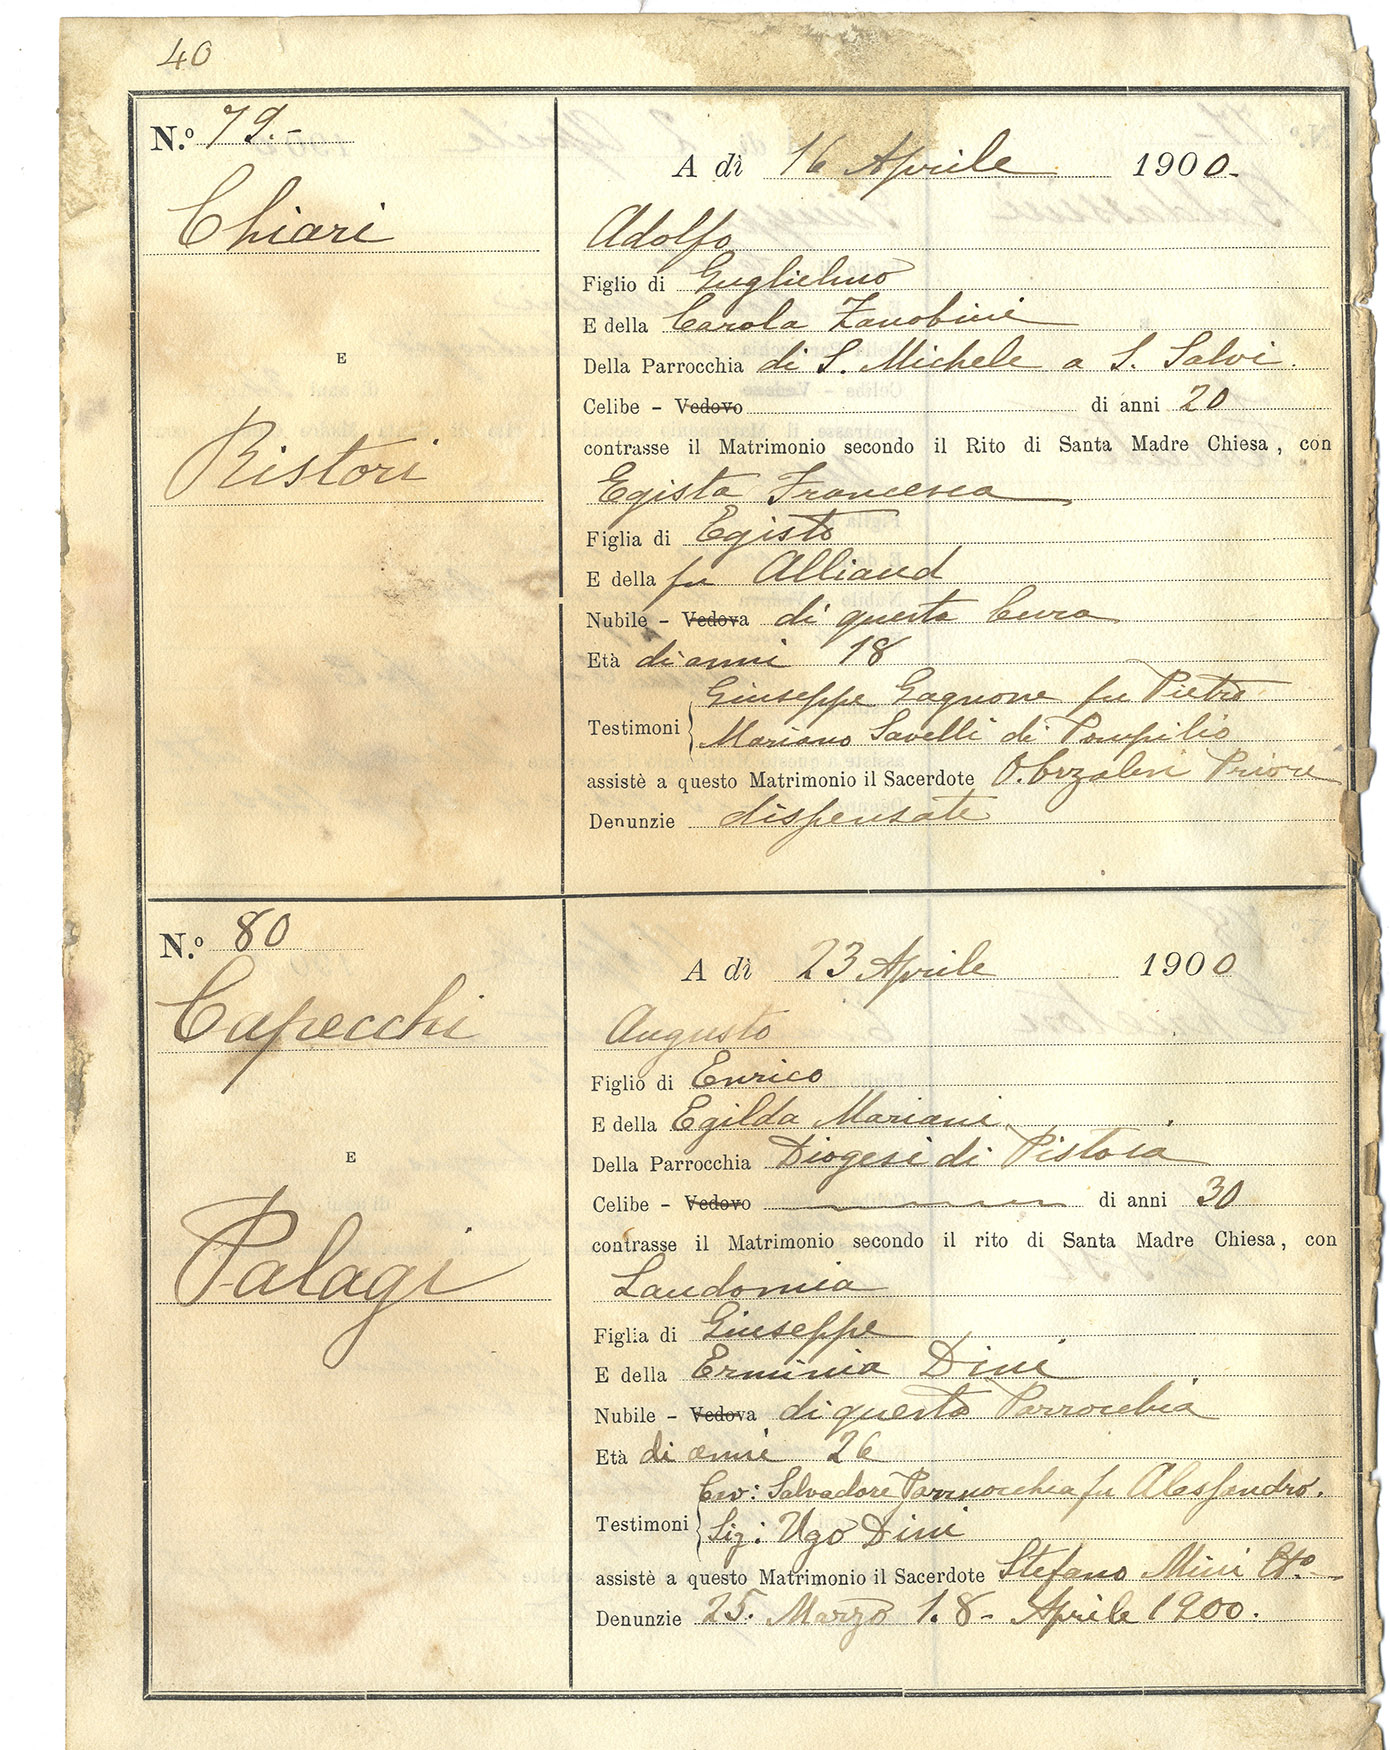 40
N.º 79.-
Chiari
E
Ristori
A dì 16 Aprile 1900.
Adolfo
Figlio di Guglielmo
E della Carola Zanobini
Della Parrocchia di S. Michele a S. Salvi.
Celibe - Vedovo di anni 20
contrasse il Matrimonio secondo il Rito di Santa Madre Chiesa, con
Egista Francesca
Figlia di Egisto
E della fu Alliaud
Nubile - Vedova di questa Cura
Età di anni 18
Giuseppe Gagnone fu Pietro
Testimoni Mariano Savelli di Pompilio
assistè a questo Matrimonio il Sacerdote Priore
Denunzie dispensate
N.º 80
Capecchi
E
Palagi
A dì 23 Aprile 1900
Augusto
Figlio di Enrico
E della Egilda Mariani
Della Parrocchia Diogesi di Pistoia
Celibe - Vedovo di anni 30
contrasse il Matrimonio secondo il rito di Santa Madre Chiesa, con
Laudomia
Figlia di Giuseppe
E della Erminia Dini
Nubile - Vedova di questa Parrocchia
Età di anni 26
Salvadore Parrnocchia fu Alessandro.
Testimoni Sig: Ugo Dini
assistè a questo Matrimonio il Sacerdote Stefano Mini
Denunzie 25. Marzo 1. 8 - Aprile 1900.